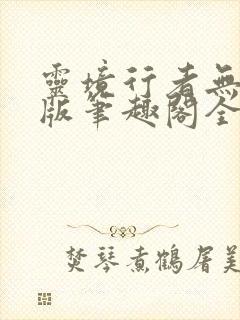 靈境行者無
版筆趣閣全
焚琴煮鶴屠美